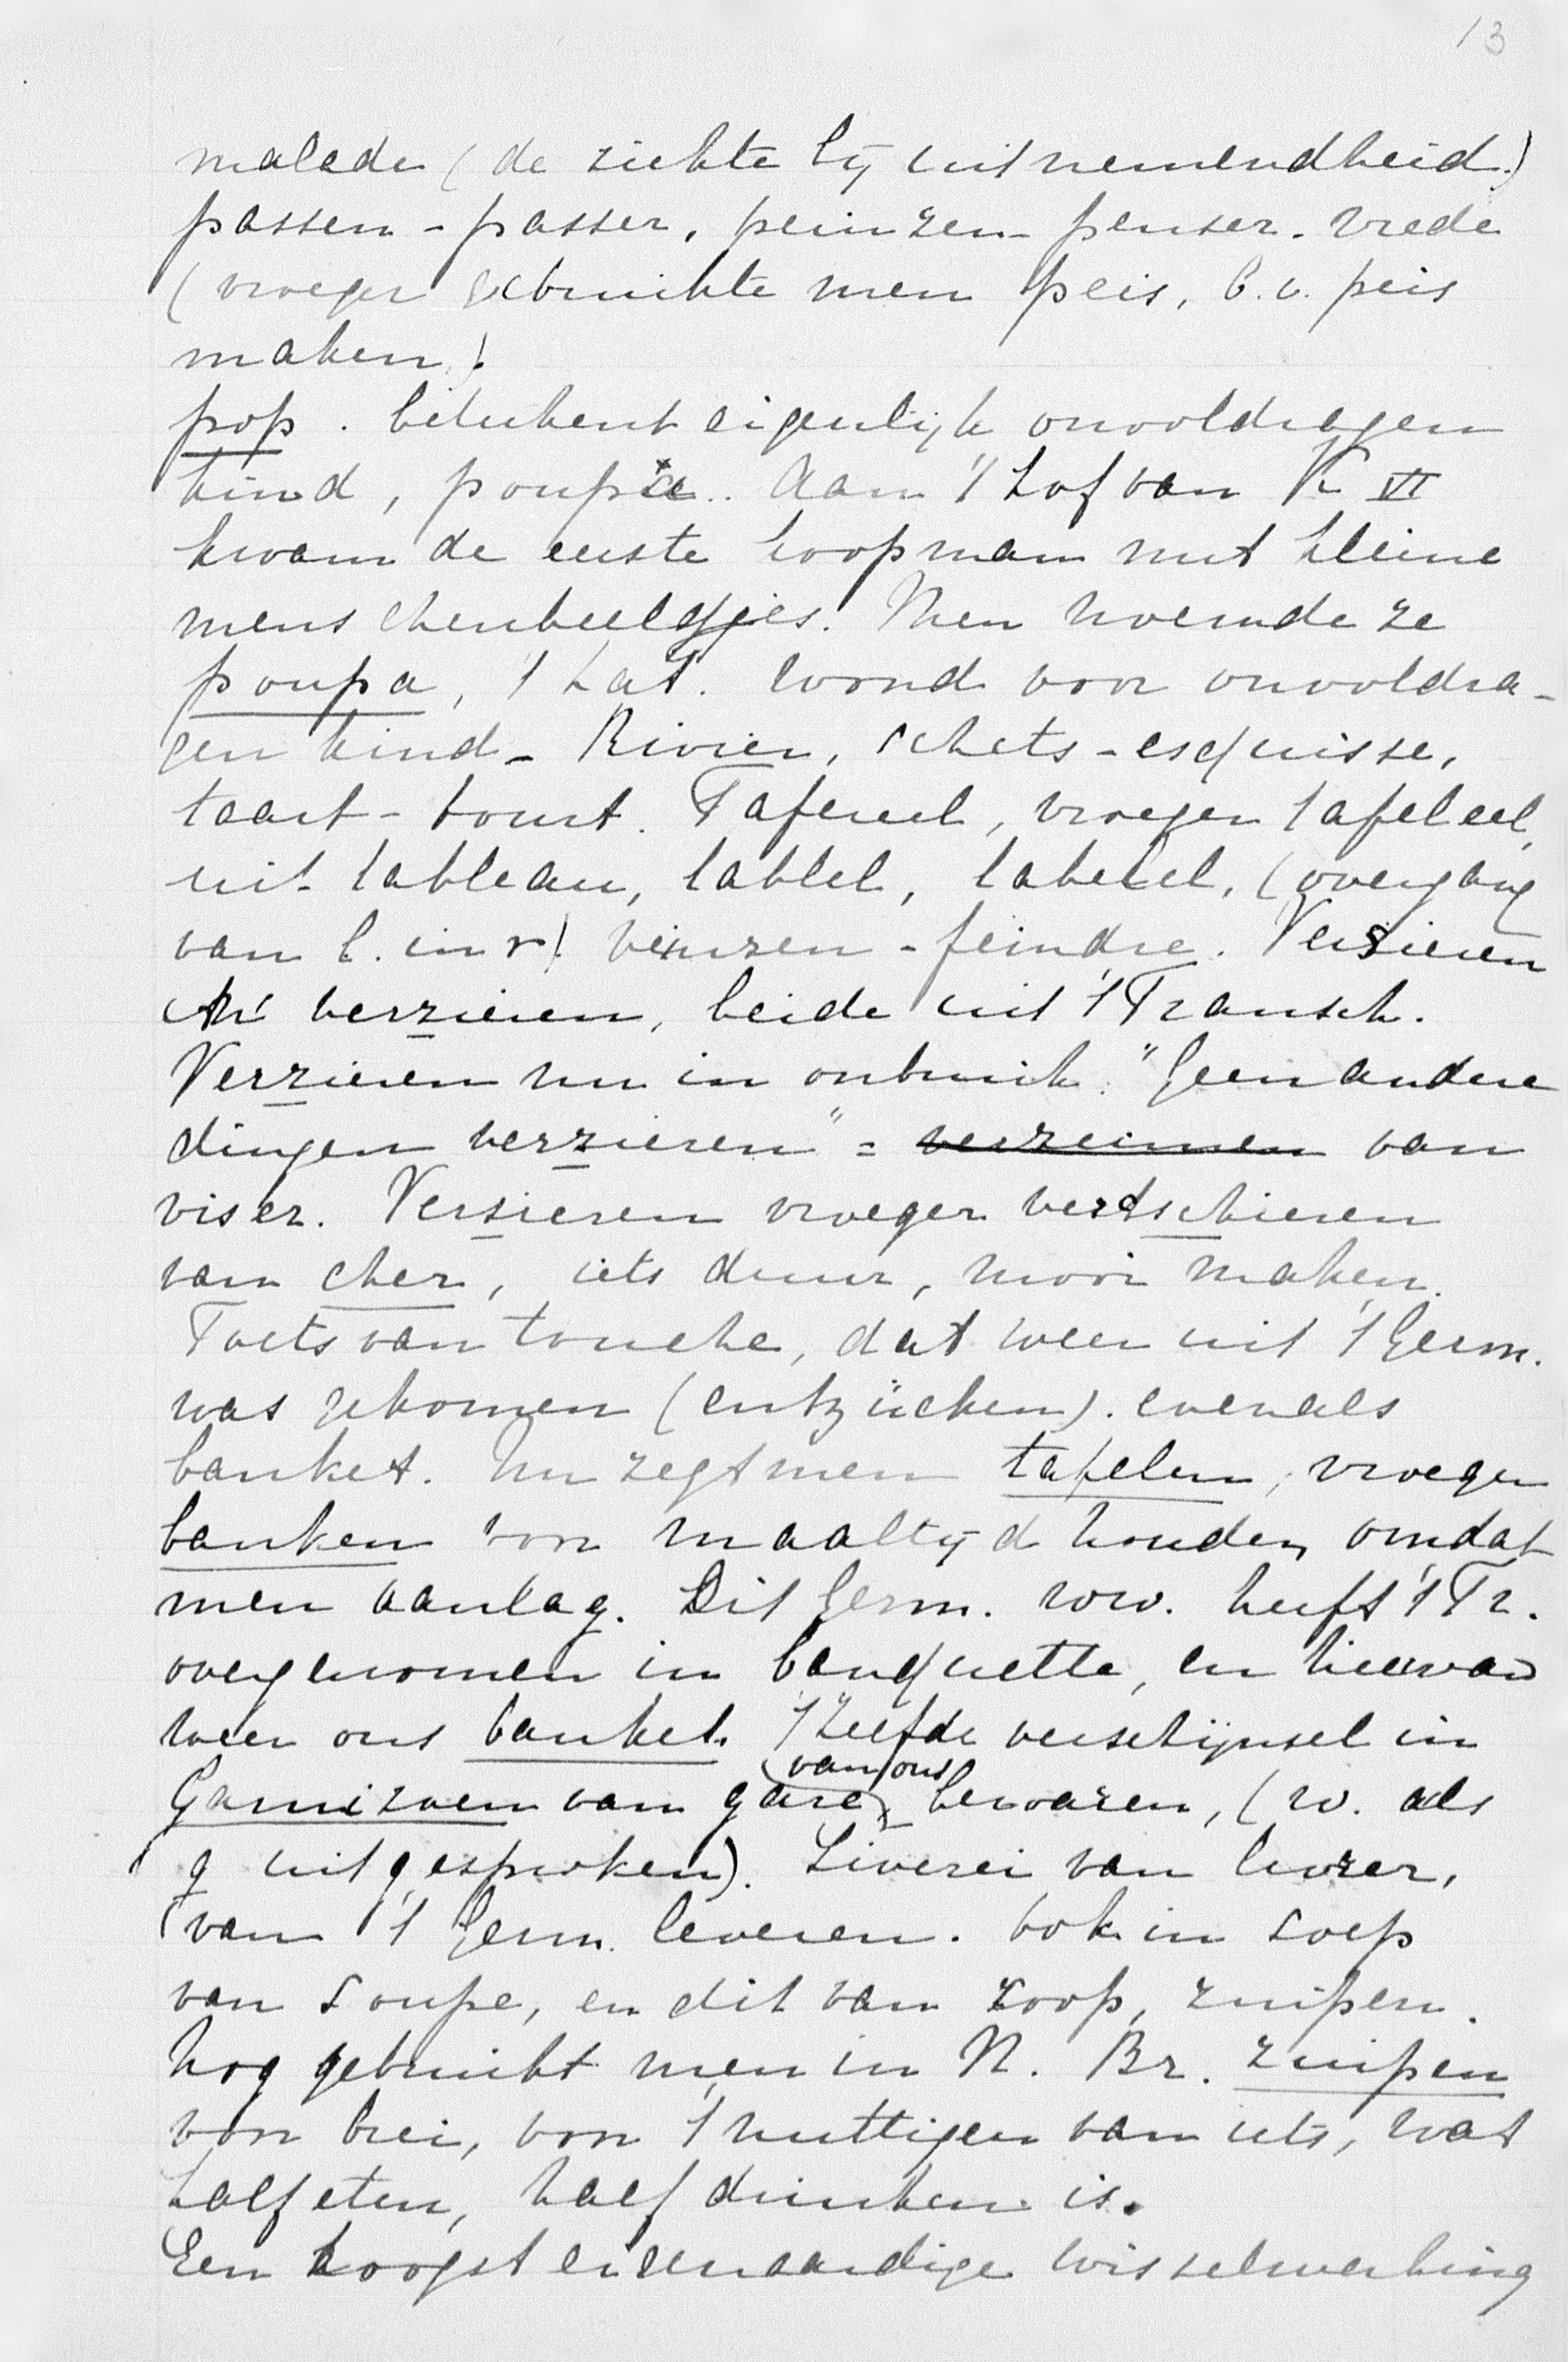 13
malade (de ziekte bij uitnemendheid.)
passen - passer, peinzen - penser. Vrede
(vroeger gebruikte men peis, b.v. peis
maken).
pop. beteekent eigenlijk onvoldragen
kind, poupa. Aan 't hof van K VI
kwam de eerste koopman met kleine
menschenbeeldjes. Men noemde ze
poupa, 't Lat. woord voor onvoldra-
gen kind - Rivier, schets - esquisse,
taart - tourt. Tafereel, vroeger tafeleel,
uit tableau, tablel, tabelel, (overgang
van l. in r) veinzen - feindre. Versieren
en verzieren, beide uit 't Fransch.
Verzieren nu in onbruik. "Geen andere
dingen verzieren" = verzinnen van
viser. Versieren vroeger vertschieren
van cher, iets duur, mooi maken.
Toets van touche, dat weer uit 't Germ.
was gekomen (entzücken). evenals
banket. Nu zegt men tafelen, vroeger
banken voor maaltijd houden, omdat
men aanlag. Dit Germ. ww. heeft 't Fr.
overgenomen in banquette, en hiervan
weer ons banket. 't Zelfde verschijnsel in
Garnizoen van gare, van ons bewaren, (w. als
g uitgesproken). Liverei van livrer,
van 't Germ. leveren. Ook in soep
van soupe, en dit van zoop, zuipen.
Nog gebruikt men in N. Br. zuipen
voor brei, voor 't nuttigen van iets, wat
half eten, half drinken is.
Een hoogst eigenaardige wisselwerking